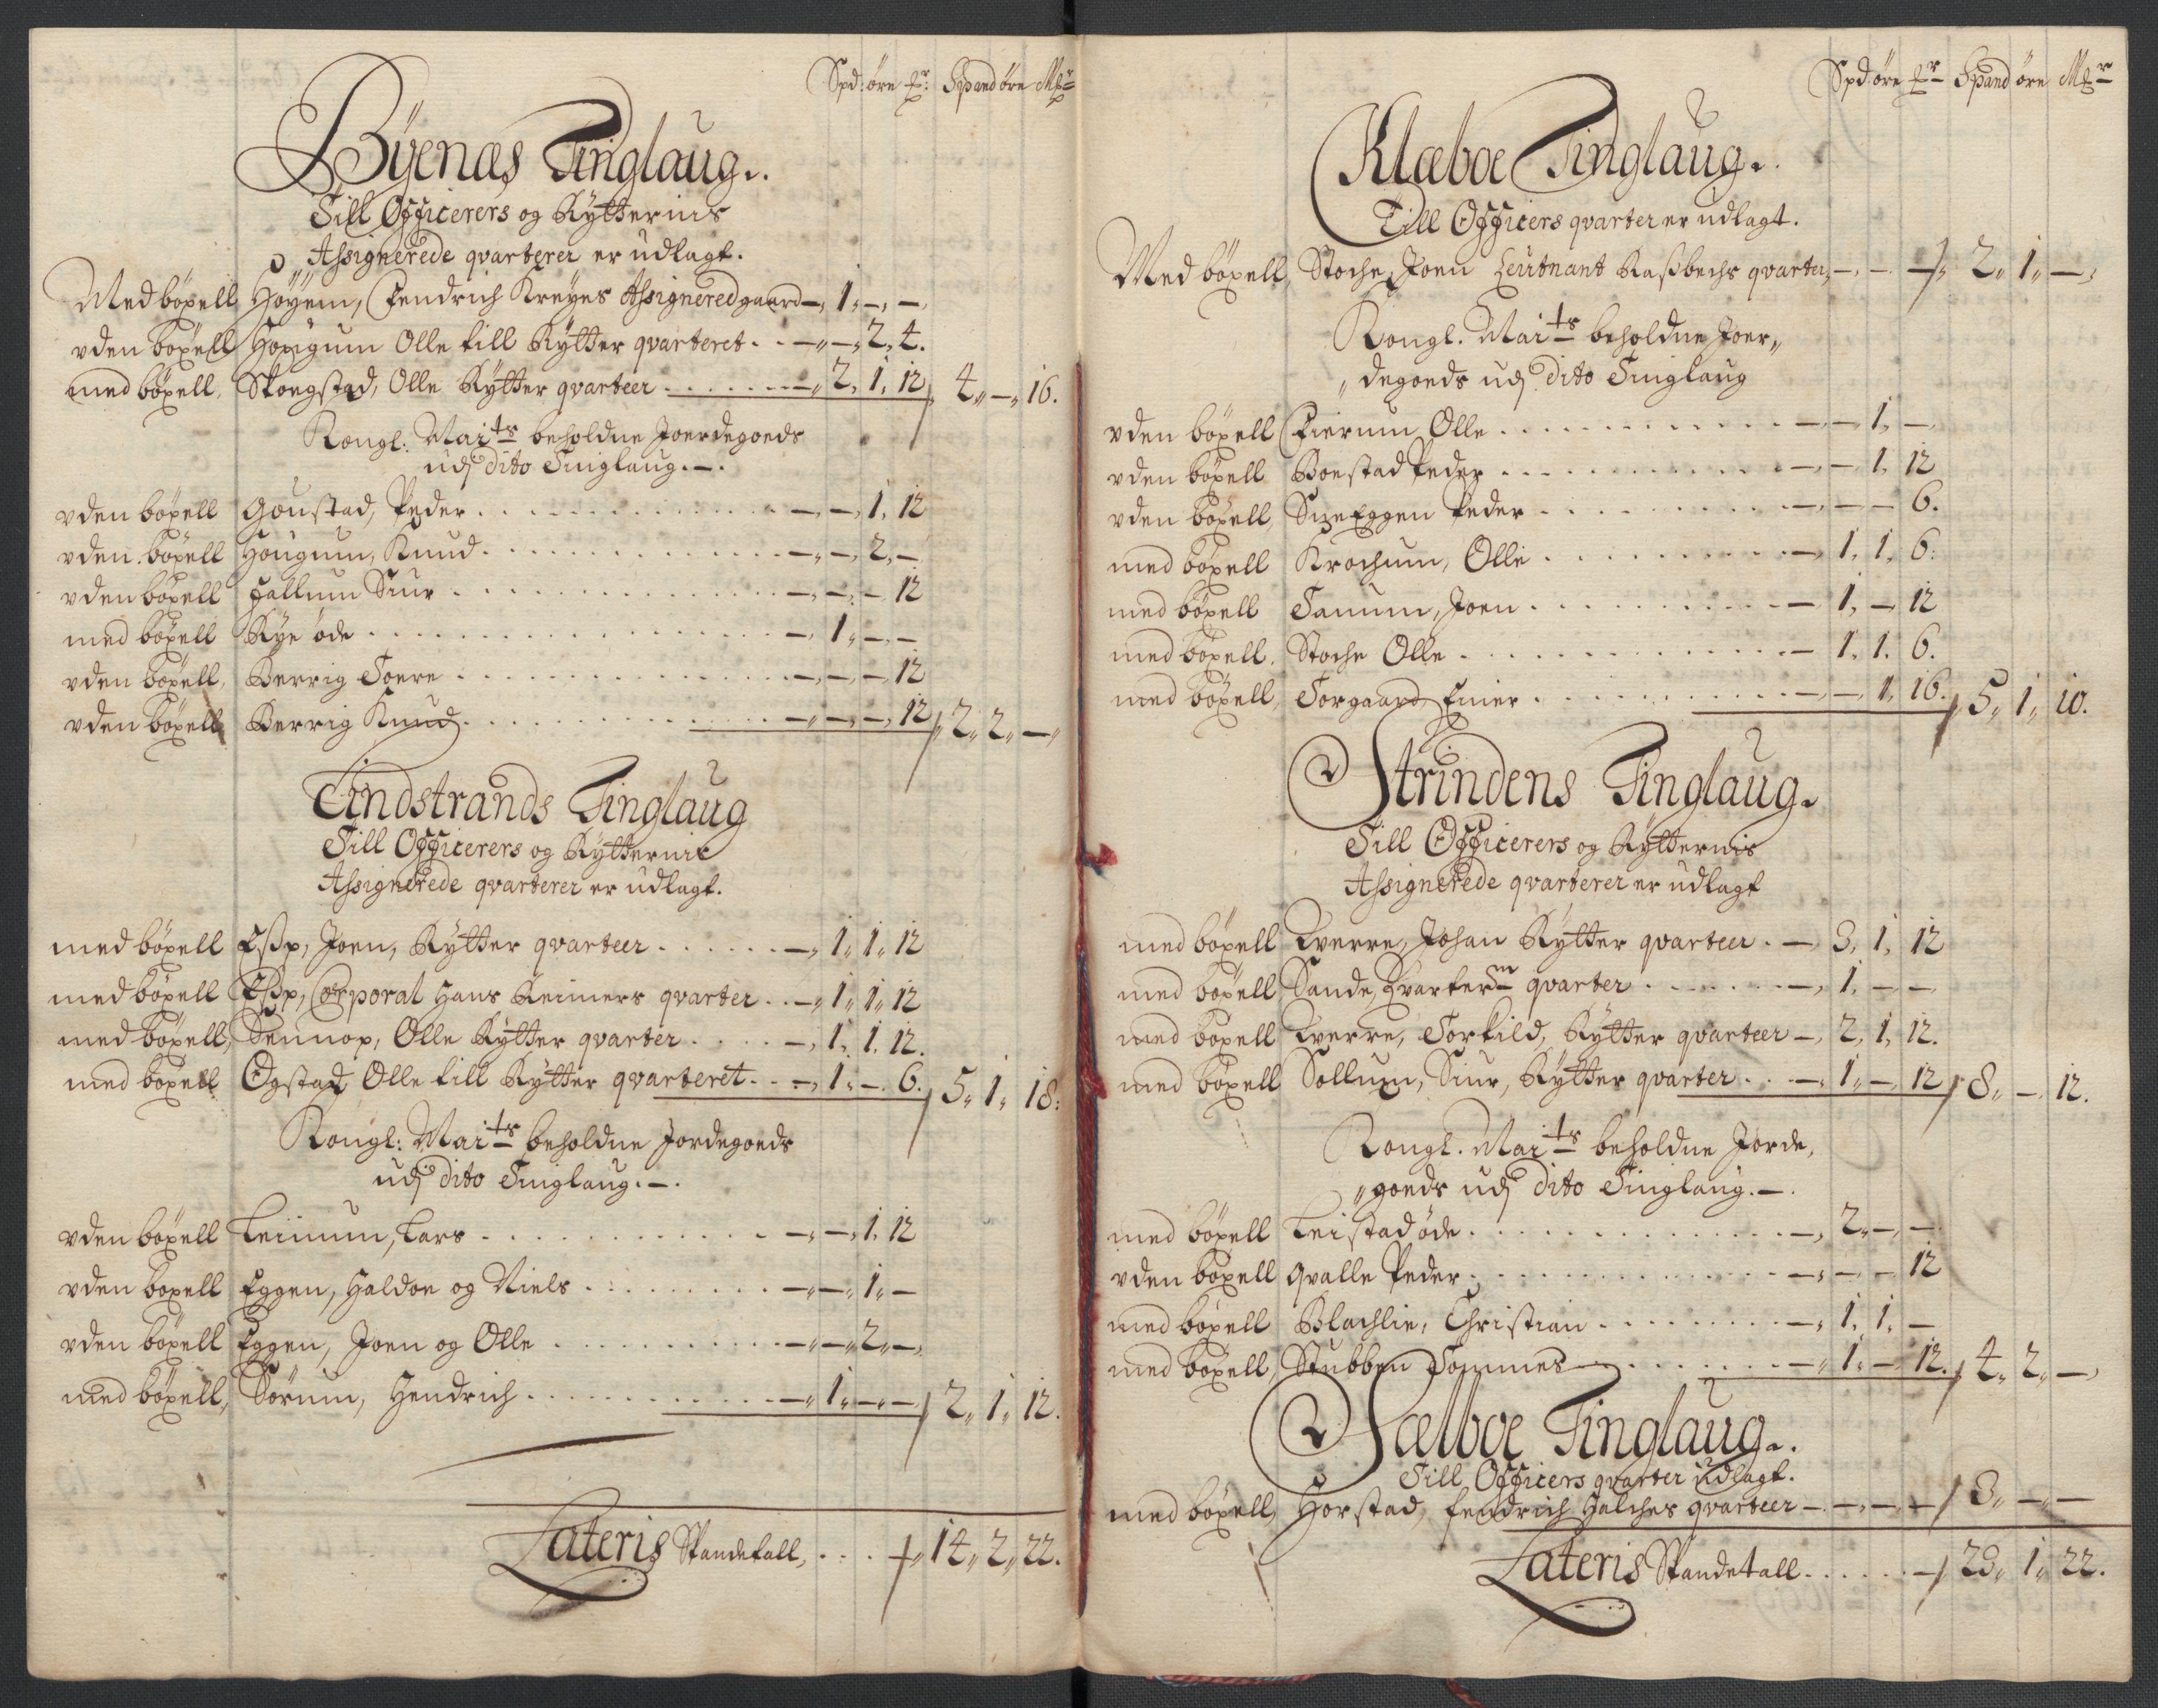 Spd: öre Mr: Spand öre Mr
Byenæs Tinglaug..
Till Officerers og Rytternis
Assignerede qvarterer er udlagt.
Med böxell Höyem, Fendrich Kreyes Assigneredgaard —, 1,, —, —
vden böxell Hougum Olle till Rytter qvarteret . . —,, —, 2, 4.
med böxell, Skougstad, Olle Rytter qvarteer . . . . . . —,, 2, 1, 12 4,, —,, 16.
Kongl: Maits beholdne Joerdegoeds
udj dito Tinglaug. —.
vden böxell Goustad, Peder . . . . —, —, 1, 12
vden böxell Hougum, Knud . . . . —,, —, 2, —
vden böxell Hallum Siur . . . . —, —, — 12
med böxell Rye öde . . . . —, 1,, —, —
vden böxell, Berrig Toere . . . . —, —, — 12
vden böxell Berrig Knud . . . . —,, —, —, 12 2,, 2,, —,,
Tindstrands Tinglaug
Till Officerers og Rytternis
Assignerede qvarterer er udlagt.
med böxell Joen, Rytter qvarteer . . . . —, 1,, 1,, 12
med böxell Corporal Hans Reimers qvarter . . —, 1,, 1,, 12
med böxell, Sennop, Olle Rytter qvarter . . . . —, 1, 1. 12.
med böxell Ogstad Olle till Rytter qvarteret . . —, 1,, —. 6. 5,, 1,, 18:
Kongl: Maits beholdne Jordegoeds
udj dito Tinglaug. —.
vden böxell Leinum, Lars . . . . —, —, 1. 12
vden böxell Eggen, Haldoe og Niels . . . . —, —, 1,, —
vden böxell Eggen, Joen og Olle . . . . —,, —,, 2,, —,
med böxell, Sörum, Hendrich . . . . —,, 1,, —,, — 2,, 1,, 12.
Lateris Spandetall, . . . 14,, 2,, 22.
Spd: öre Mr Spand öre Mr
Klæboe Tinglaug..
Till Officers qvarter er udlagt.
Med böxell, Stoche Joen Leutnant Rassbechs qvarter, —, — — 2,, 1,, —,
Kongl. Maits beholdne Joer,,
,,degoeds udj dito Tinglaug
vden böxell Fierum Olle . . . . —, — 1, —
vden böxell Boestad Peder . . . . —, — 1, 12
vden böxell, Peder . . . . —, — — 6.
med böxell Krochum, Olle . . . . — 1, 1, 6:
med böxell Tanum, Joen . . . . — 1, — 12
med böxell, Stoche Olle . . . . — 1. 1. 6.
med böxell, Torgaard Einer . . . . —, — 1, 16. 5,, 1,, 10.
Strindens Tinglaug.
Till Officerers og Rytternis
Assignerede qvarterer er udlagt
med böxell Lverre, Johan Rytter qvarteer . — 3, 1, 12
med böxell Sande, Qvarterm qvarter . . . . —, 1, — —
med böxell Lverre, Torkild, Rytter qvarteer —, 2, 1, 12.
med böxell Sollum, Siur, Rytter qvarter . . . —, 1,, —, 12 8,, — 12.
Kongl. Maits beholdne Jorde,
,,goeds udj dito Tinglaug. —.
med böxell Leistad öde . . . . —, 2,, —, —
vden böxell Qvalle Peder . . . . —, — — 12
med böxell Blachlie, Christian . . . . —, 1, 1, —
med böxell, Stubben Tommes . . . . —,, 1,, — 12. 4,, 2,, —,
Sælboe Tinglaug..
Till Officers qvarter udlagt.
med böxell, Horstad, Fendrich Halches qvarteer —. —, —, — 3,, —,, —
Lateris Spandetall . . . . . . 23,, 1,, 22.